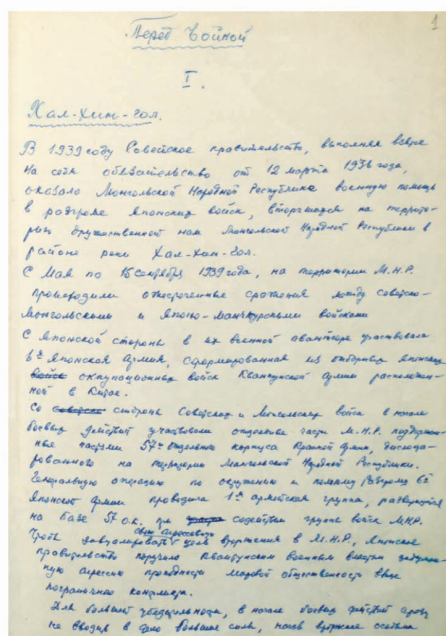 1
Перед войной
I.
Хал-Хин-Гол.
В 1939 году Советское правительство, выполняя взятое
на себя обязательство от 12 марта 1936 года,
оказало Монгольской Народной Республике военную помощь
в разгроме японских войск, вторгшихся на террито-
рию дружественной нам Монгольской Народной Республики в
районе реки Хал-Хин-Гол.
С Мая по 15 Сентября 1939 года, на территории М.Н.Р.
происходили ожесточенные сражения между советско-
монгольскими и японо-маньчжурскими войсками
С японской стороны в их военной авантюре участвовала
6ая Японская Армия, сформированная из отборных японских
войск оккупационных войск Квантунской армии расположен-
ной в Китае.
Со стороны Советских и Монгольских войск в начале
боевых действий участвовали отдельные части М.Н.Р. поддержан-
ные частями 57го отдельного корпуса Красной Армии, дислоци-
рованного на территории Монгольской Народной Республики.
Генеральную операцию по окружению и полному разгрому 6й
Японской армии проводила 1ая армейская группа, развернутая
на базе 57 о.к. при содействии группы войск МНР.
свои агрессивные
Чтобы завуалировать цели вторжения в М.Н.Р., Японское
правительство поручило Квантунским военным властям
ную агрессию преподнести мировой общественности ввиде
пограничного конфликта.
Для большей убедительности, в начале боевых действий
не вводил в дело большие силы, начав вторжение особыми